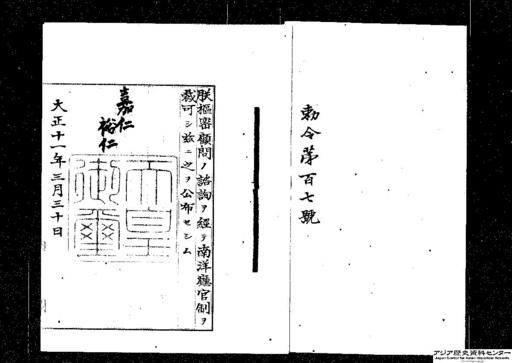 勅令第百七號
朕樞密顧問ノ諮詢ヲ經テ南洋廳官制ヲ
裁可シ玆ニ之ヲ公布セシム
嘉仁
裕仁
天皇御璽
大正十一年三月三十日
アジア歴史資料センター
Japan Center for Asian Historical Records